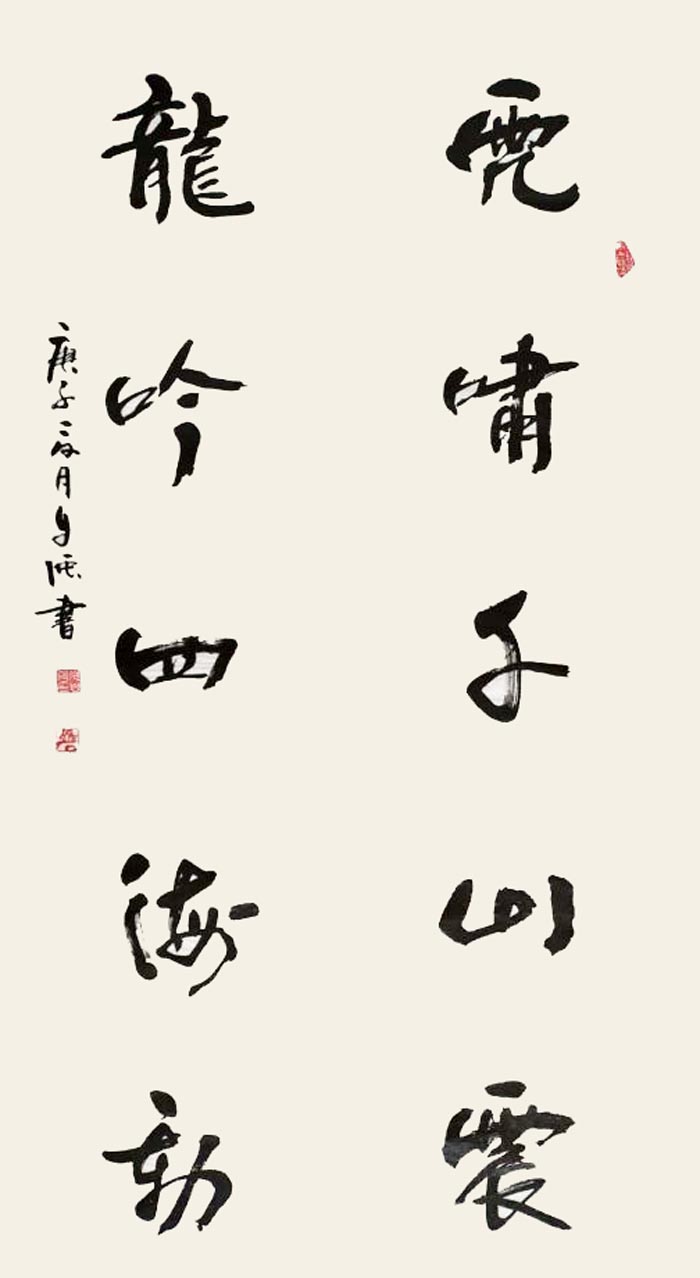 虎嘯千山震
龍吟四海動
庚子夏月書